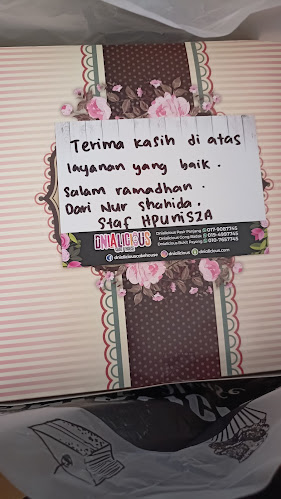 Terima kasih di atas
layanan yang baik.
Salam ramadhan.
Dari Nur Shahida.
Staf HPUniSZA
DNIALICIOUS
Dnialicious Pasir Panjang 017-9087745
Dnialicious Gong Badak 019-4997745
Dnialicious Bukit Payung 010-7657745
dnialiciouscakehouse dnialicious dnialicious.com